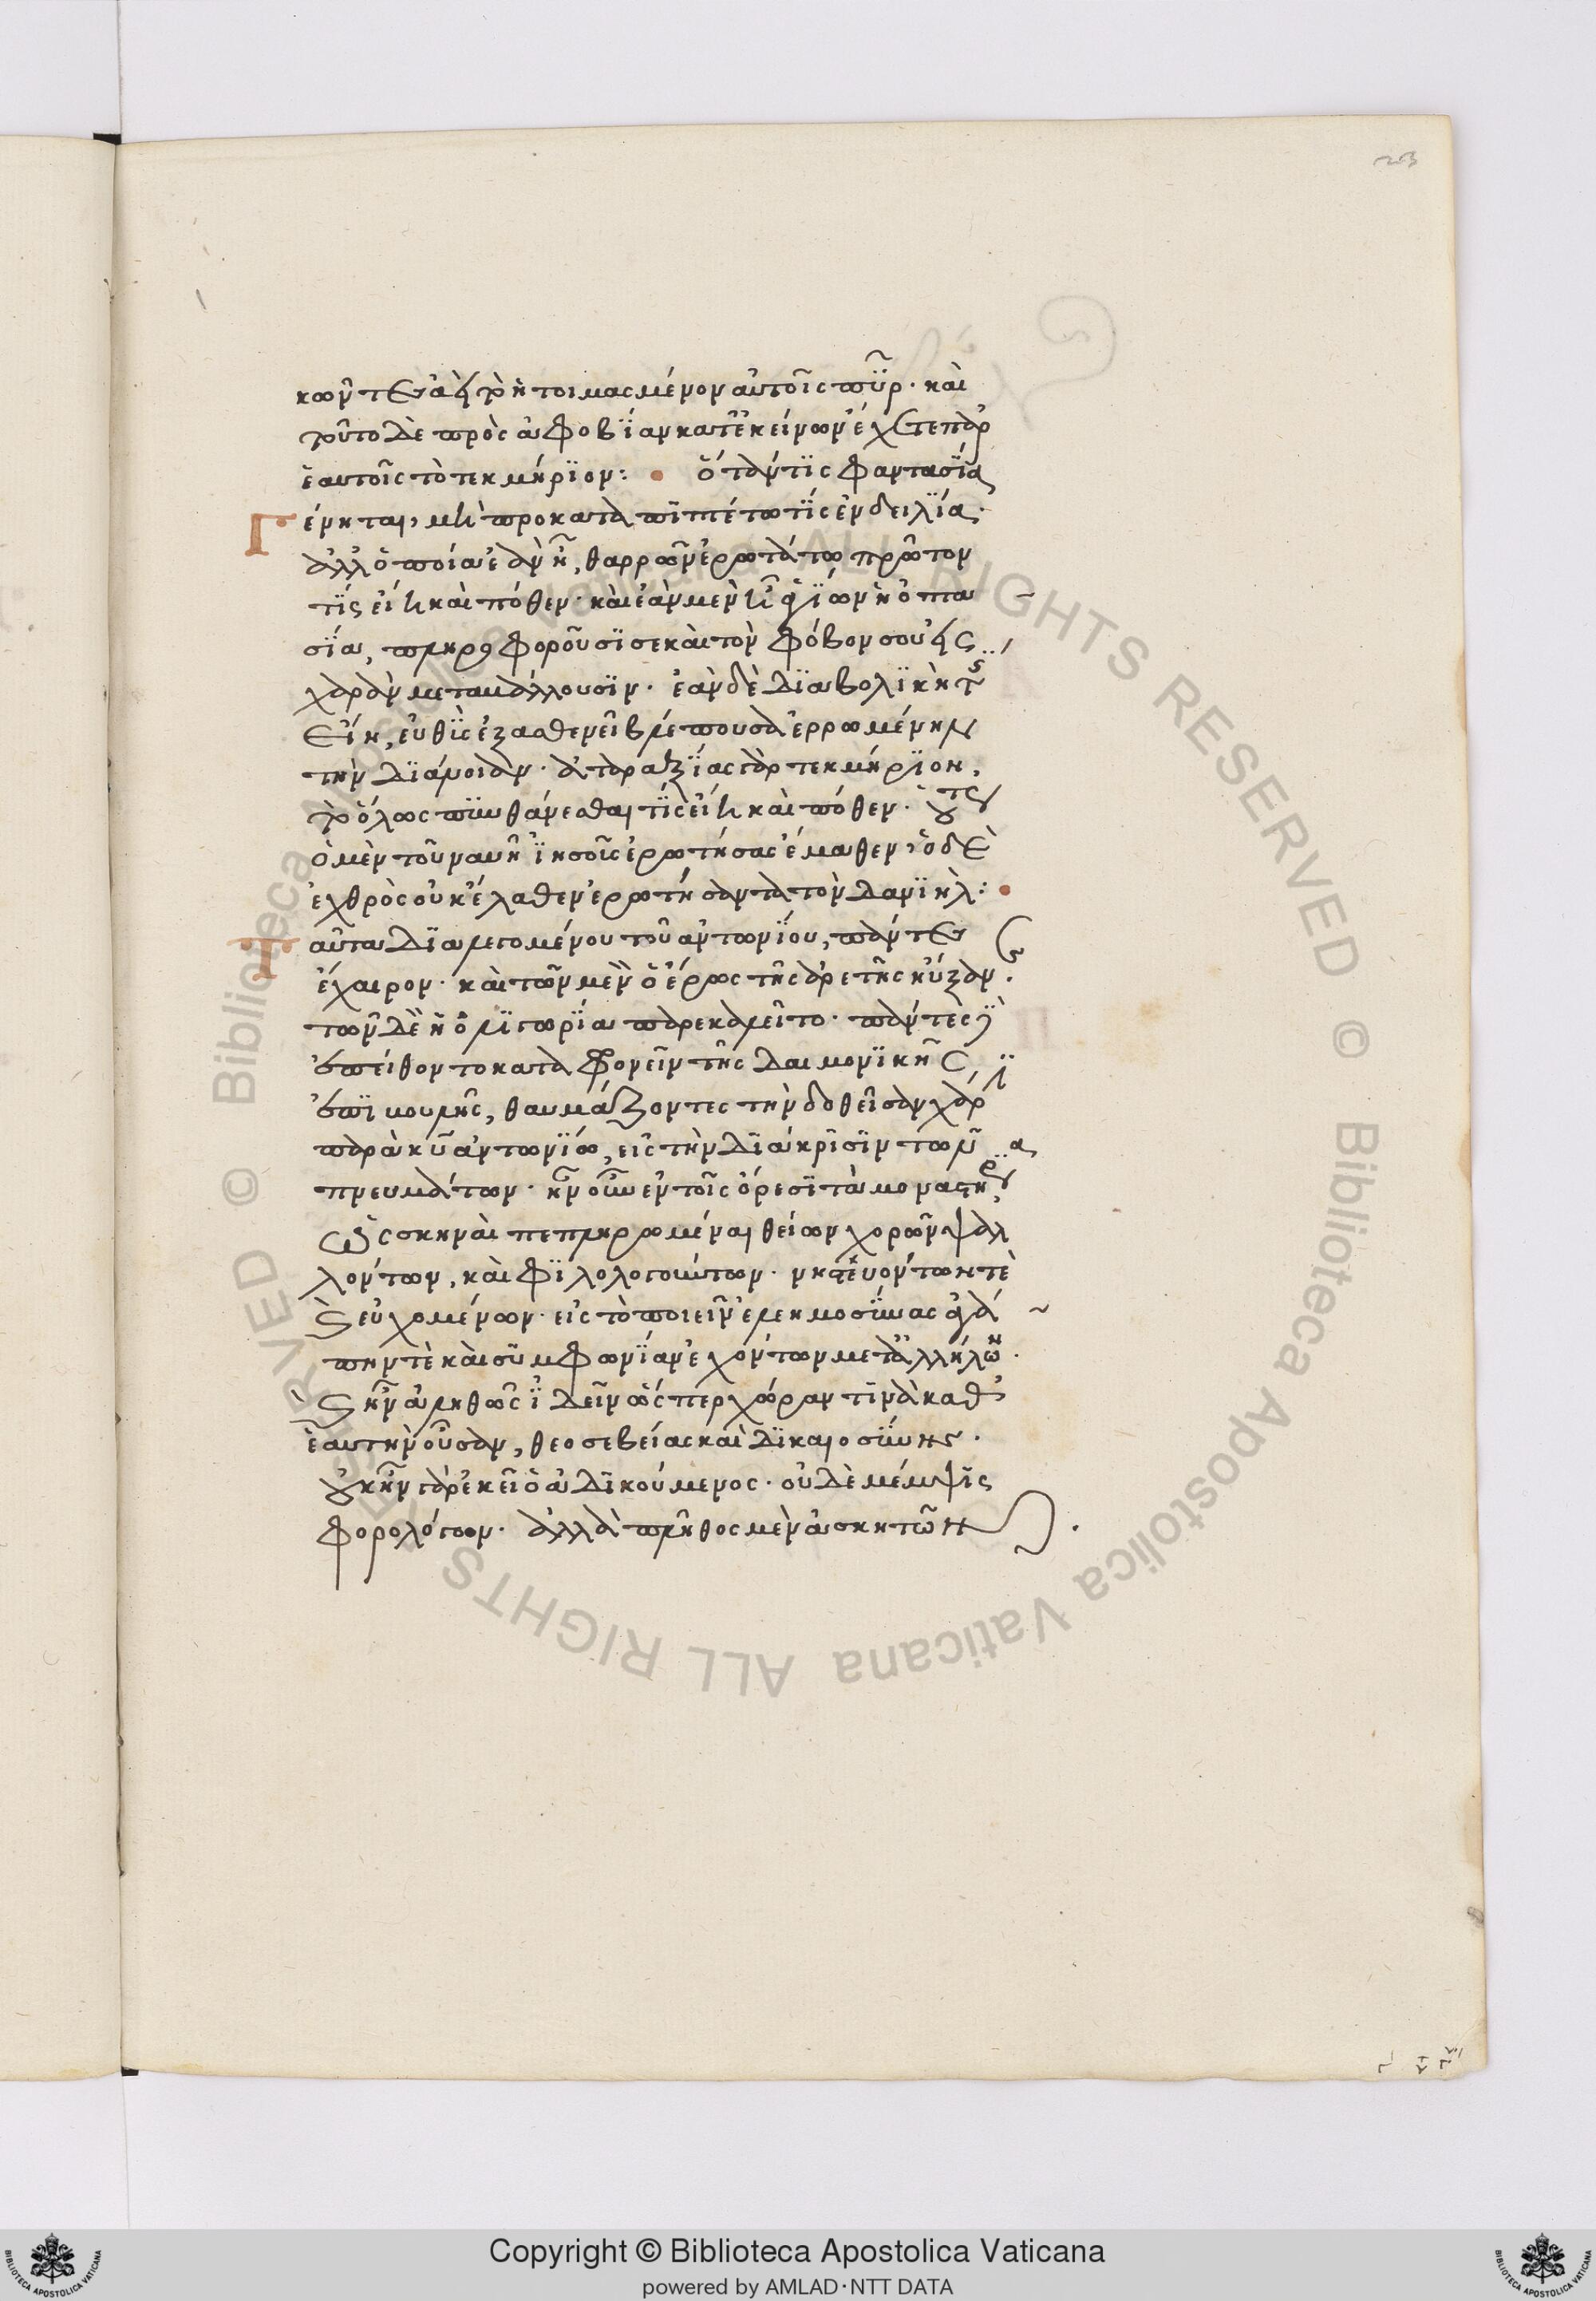 κῶντες ἀεὶ τὸ ἡτοιμασμένον αὐτοῖς πῦρ. καὶ
τοῦτο δὲ πρὸς ἀφοβΐαν κατ' ἐκείνων ἔχετε παρ'
ἑαυτοῖς τὸ τεκμήρϊον: ὅταν τϊς φαντασΐα
Γένηται, μὴ προκαταπϊπτέτω τϊς ἐν δειλΐα.
ἀλλ' ὁποία ἐὰν ἦ, θαρρῶν ἐρωτάτω πρῶτον
τΐς εἶ σὺ καὶ πόθεν. καὶ ἐὰν μὲν ἦ ἁγΐων ἡ ὀπτα
σΐα, πληροφοροῦσϊ σε καὶ τὸν φόβον σου εἰς
χαρὰν μεταβάλλουσϊν. ἐὰν δὲ δϊαβολϊκή τϊς
εἴη, εὐθὺς ἐξασθενεῖ βλέπουσα ἐρρωμένην
τὴν δϊάνοιαν. ἀταραξΐας γὰρ τεκμήρϊον,
τὸ ὅλως πυνθάνεσθαι τΐς εἶ σὺ καὶ πόθεν. οὕτως
ὁ μὲν τοῦ ναυῆ ἰησοῦς ἐρωτήσας ἔμαθεν, ὁ δὲ
ἐχθρὸς οὐκ ἔλαθεν ἐρωτήσαντα τὸν δανϊήλ:
Ταῦτα δϊαλεγομένου τοῦ ἀντωνΐου, πάντες
ἔχαιρον. καὶ τῶν μὲν ὁ ἔρως τῆς ἀρετῆς ηὔξανε.
τῶν δὲ ἡ ὀλϊγωρΐα παρεκαλεῖτο. πάντες δὲ
ἐπείθοντο καταφρονεῖν τῆς δαιμονϊκῆς
ἐπϊβουλῆς, θαυμάζοντες τὴν δοθεῖσαν χάρϊν
παρὰ κυ ἀντωνΐω, εἰς τὴν δϊάκρϊσϊν τῶν
πνευμάτων. ἦν οὖν ἐν τοῖς ὄρεσϊ τὰ μοναστήρια
ὡς σκηναὶ πεπληρωμέναι θείων χορῶν ψαλ
λόντων, καὶ φϊλολογούντων. νηστευόντων τὲ
καὶ εὐχομένων. εἰς τὸ ποιεῖν ἐλεημοσύνας ἀγά
πην τὲ καὶ συμφωνΐαν ἐχόντων μετ' ἀλλήλων.
καὶ ἦν ἀληθῶς ἰδεῖν ὥσπερ χώραν τϊνὰ καθ'
ἑαυτὴν οὖσαν, θεοσεβείας καὶ δϊκαιοσύνης.
οὐκ ἦν γὰρ ἐκεῖ ὁ ἀδϊκούμενος. οὐδὲ μέμψϊς
φορολόγων. ἀλλὰ πλῆθος μὲν ἀσκητῶν.
Copyright © Biblioteca Apostolica Vaticana
powered by AMLAD·NTT DATA